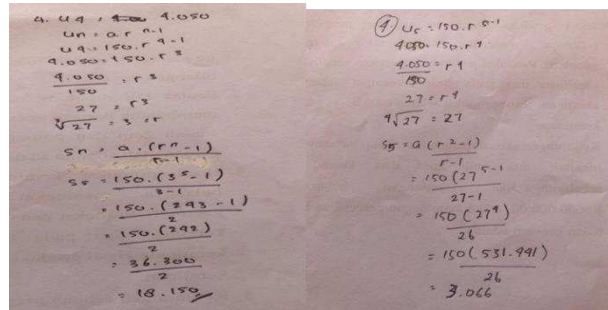 4. U4 = 4.050
Un = a r n-1
U4 = 150. r 4-1
4.050 = 150. r 3
4.050 = r 3
150
27 = r 3
3√27 = 3 = r
Sn = a . (r n - 1)
r-1
S5 = 150. (3 5 - 1)
3-1
= 150. (243 - 1)
2
= 150. (242)
2
= 36.300
2
= 18.150
4) U5 = 150. r 5-1
4050 = 150. r 4
4.050 = r 4
150
27 = r 4
4√27 = 27
S5 = a (r 2 - 1)
r-1
= 150 (27 5-1
27-1
= 150 (27 4)
26
= 150 (531.441)
26
= 3.066